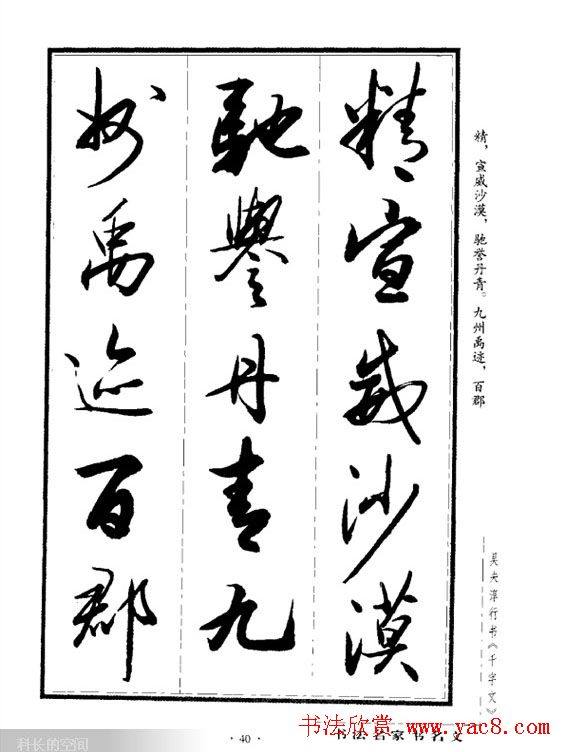 精宣威沙漠
馳譽丹青九
州禹迹百郡
精，宣威沙漠，驰誉丹青。九州禹迹，百郡
吴夫淳行书《千字文》
·40·
书法名家书名文
书法欣赏
www.yac8.com
科长的空间